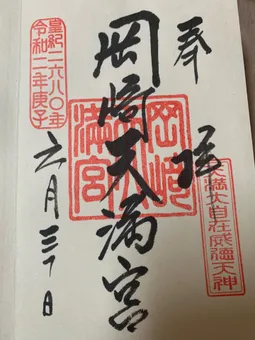 奉拝
天満大自在威徳天神
岡崎天満宮
岡崎天満宮
皇紀二六八〇年
令和二年庚子
六月三十日